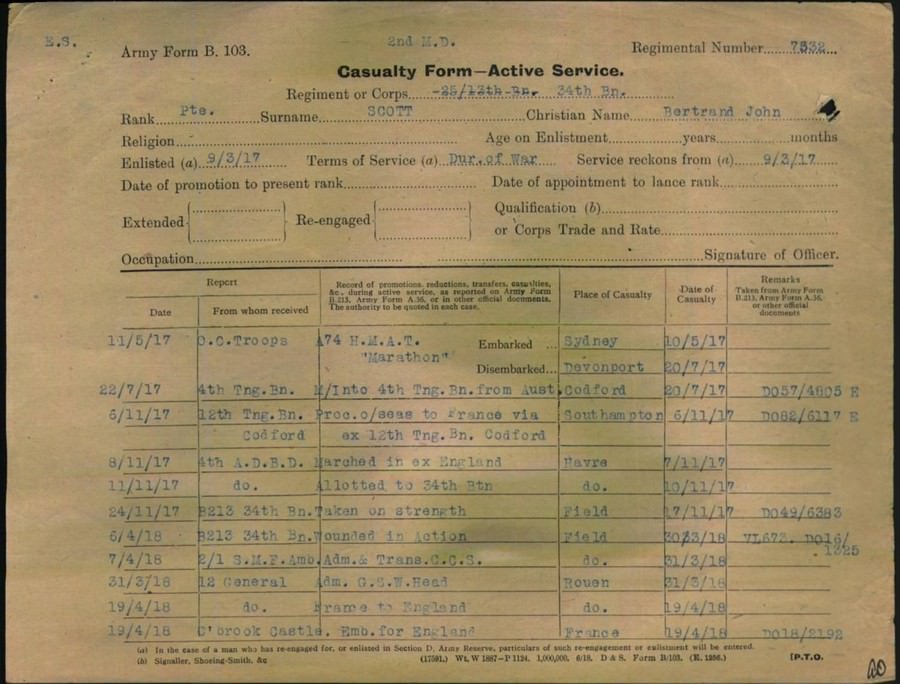 E.S.
Army Form B. 103.
2nd M.D.
Regimental Number 7532
Casualty Form—Active Service.
Regiment or Corps 25/13th Bn. 34th Bn.
Rank Pte. Surname SCOTT Christian Name Bertrand John
Religion Age on Enlistment years months
Enlisted (a) 9/3/17 Terms of Service (a) Dur.of War Service reckons from (a) 9/3/17
Date of promotion to present rank Date of appointment to lance rank
Extended Re-engaged Qualification (b)
or Corps Trade and Rate
Occupation Signature of Officer.
Report
Date From whom received
Record of promotions, reductions, transfers, casualties,
&c., during active service, as reported on Army Form
B.213, Army Form A.36, or in other official documents.
The authority to be quoted in each case.
Place of Casualty
Date of
Casualty
Remarks
Taken from Army Form
B.213, Army Form A.36,
or other official
documents
11/5/17 O.C.Troops A74 H.M.A.T. Embarked ... Sydney 10/5/17
"Marathon" Disembarked... Devonport 20/7/17
22/7/17 4th Tng.Bn. M/Into 4th Tng.Bn.from Aust. Codford 20/7/17 DO57/4805 E
6/11/17 12th Tng.Bn. Proc.o/seas to France via Southampton 6/11/17 DO82/6117 E
Codford ex 12th Tng.Bn. Codford
8/11/17 4th A.D.B.D. Marched in ex England Havre 7/11/17
11/11/17 do. Allotted to 34th Btn do. 10/11/17
24/11/17 B213 34th Bn. Taken on strength Field 17/11/17 DO49/6383
6/4/18 B213 34th Bn. Wounded in Action Field 30/3/18 VL673. DO16/
1325
7/4/18 2/1 S.M.F.Amb. Adm.& Trans.C.C.S. do. 31/3/18
31/3/18 12 General Adm. G.S.W.Head Rouen 31/3/18
19/4/18 do. to England do. 19/4/18
19/4/18 C'brook Castle. Emb.for England France 19/4/18 DO18/2192
(a) In the case of a man who has re-engaged for, or enlisted in Section D, Army Reserve, particulars of such re-engagement or enlistment will be entered.
(b) Signaller, Shoeing-Smith, &c (17591.) Wt. W 1887—P 1124. 1,000,000. 6/18. D & S. Form B/103. (E. 1256.) [P.T.O.